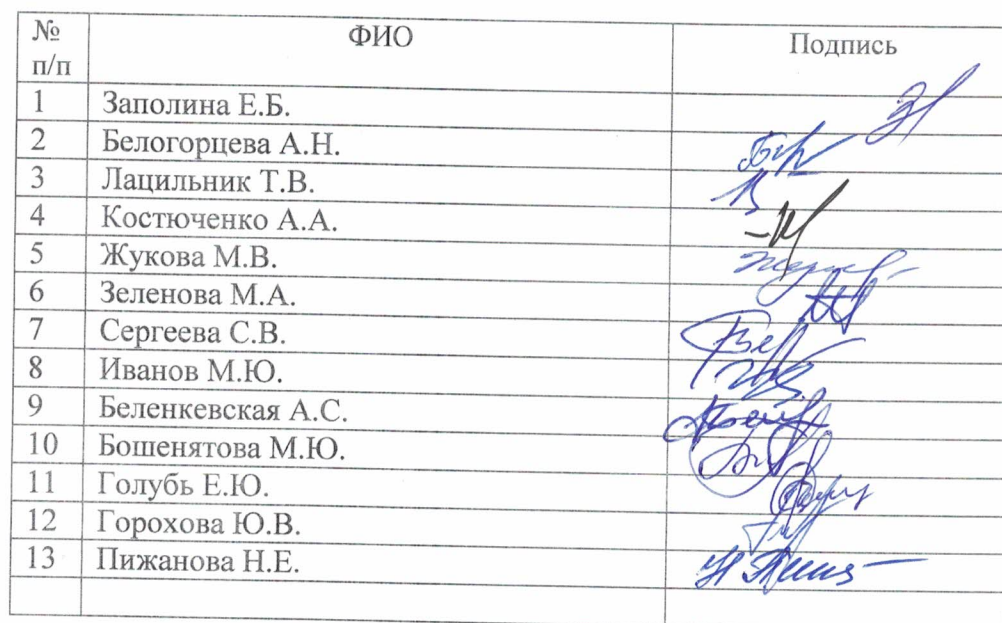 № п/п ФИО Подпись
1 Заполина Е.Б.
2 Белогорцева А.Н.
3 Лацильник Т.В.
4 Костюченко А.А.
5 Жукова М.В.
6 Зеленова М.А.
7 Сергеева С.В.
8 Иванов М.Ю.
9 Беленкевская А.С.
10 Бошенятова М.Ю.
11 Голубь Е.Ю.
12 Горохова Ю.В.
13 Пижанова Н.Е.